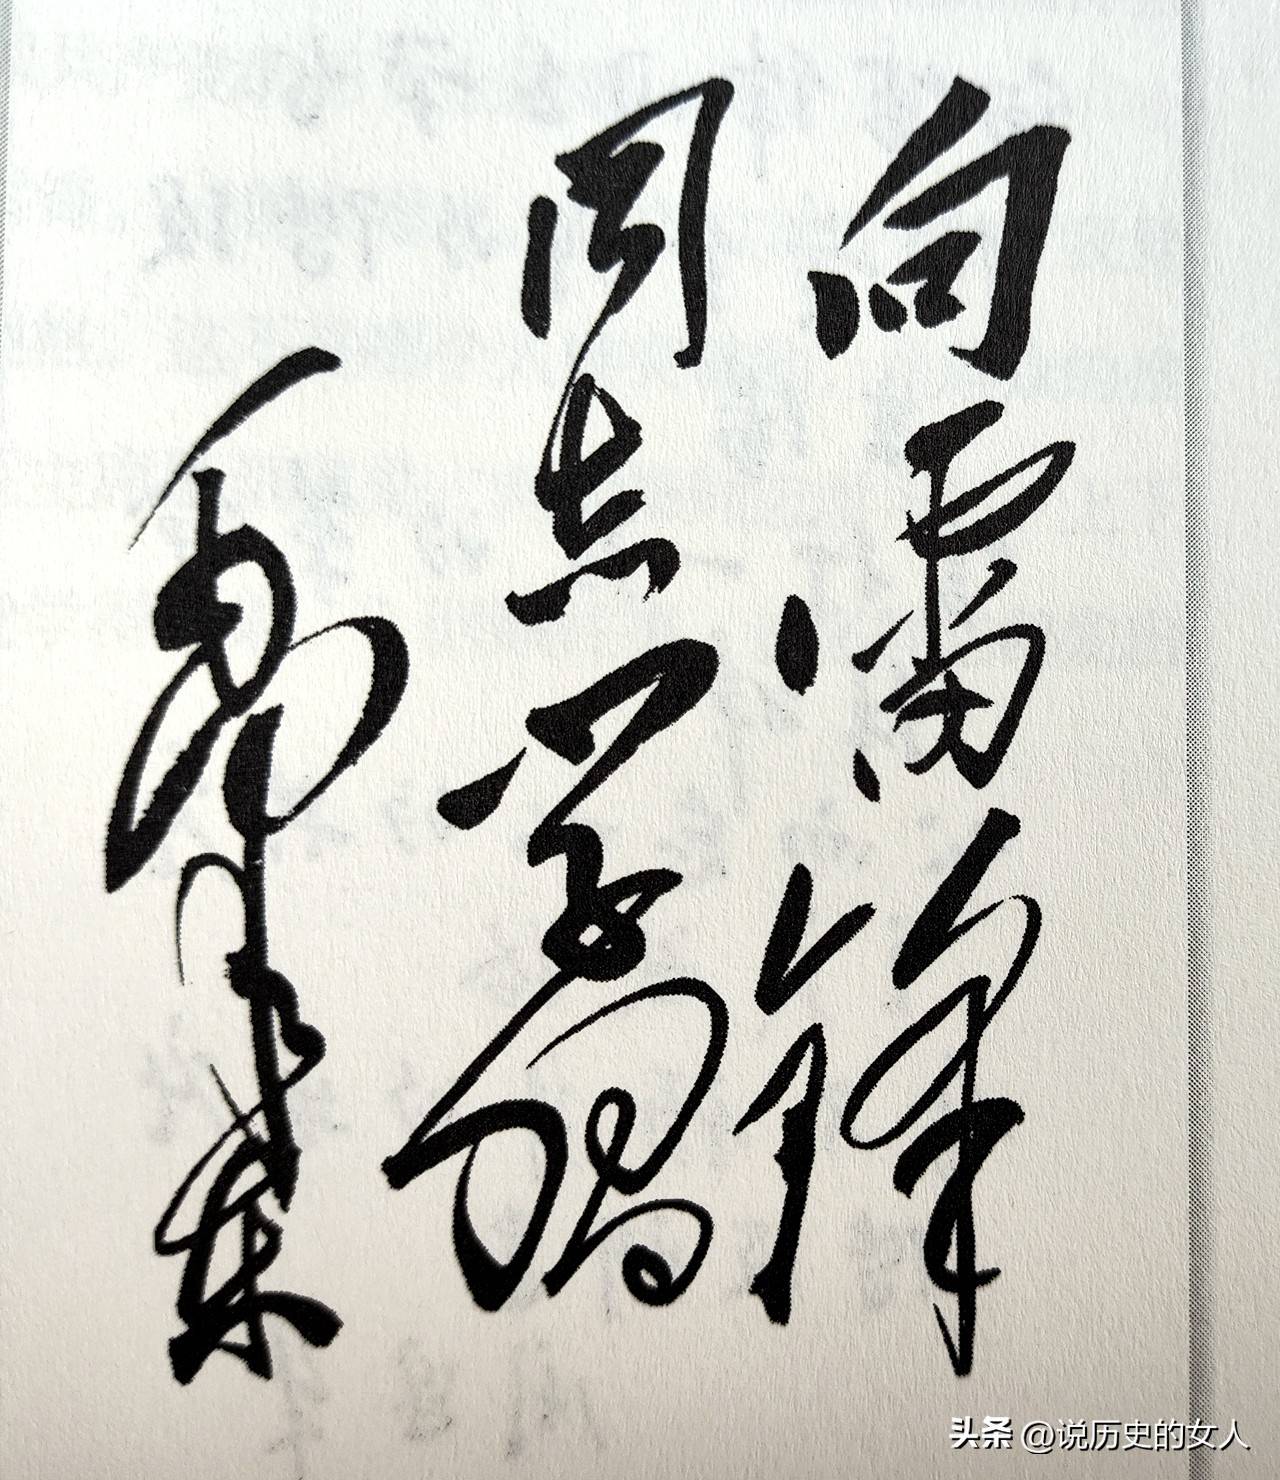 向雷锋
同志学习
毛泽东
头条 @说历史的女人